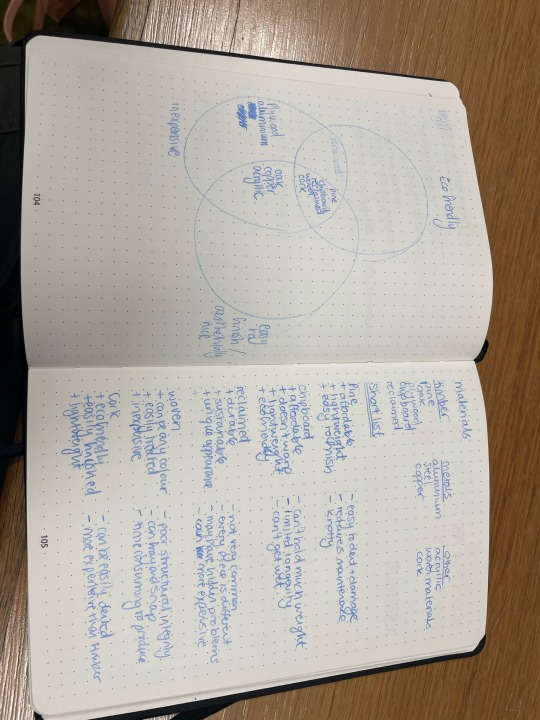 eco friendly
pine
chipboard
woven
reclaimed
cork
plywood
aluminium
oak
copper
acrylic
inexpensive
easy
to
finish/
aesthetically
nice
104
materials
timber
pine
oak
plywood
chipboard
reclaimed
metals
aluminium
steel
copper
other
acrylic
woven materials
cork
short list
Pine
+ affordable
+ lightweight
+ easy to finish
- easy to dent + damage
- requires maintenance
- knotty
chipboard
+ affordable
+ doesn't warp
+ lightweight
+ ecofriendly
- can't hold much weight
- limited longevity
- can't get wet
reclaimed
+ durable
+ sustainable
+ unique appearance
- not very common
- every piece is different
- may have hidden problems
- more expensive
woven
+ can be any colour
+ easily moved
+ inexpensive
- poor structural integrity
- can fray and snap
- time consuming to produce
cork
+ ecofriendly
+ easily finished
+ lightweight
- can be easily dented
- more expensive than timber
105